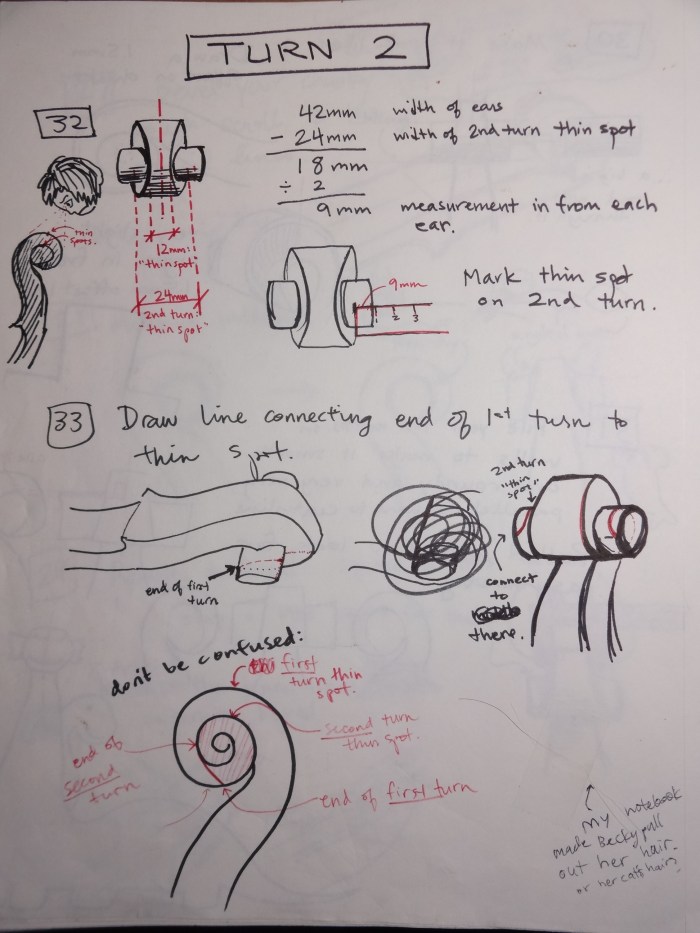 TURN 2
32
42mm width of ears
- 24mm width of 2nd turn thin spot
18mm
÷ 2
9mm measurement in from each
ear.
thin
spots.
12mm:
"thin spot"
24mm
2nd turn:
"thin spot"
9mm
1 2 3
Mark thin spot
on 2nd turn.
33 Draw line connecting end of 1st turn to
thin spot.
end of first
turn
2nd turn
"thin
spot"
connect
to
there.
don't be confused:
first
turn thin
spot.
second turn
thin spot.
end of
second
turn
end of first turn
my notebook
made Becky pull
out her hair.
or her cat's hair.